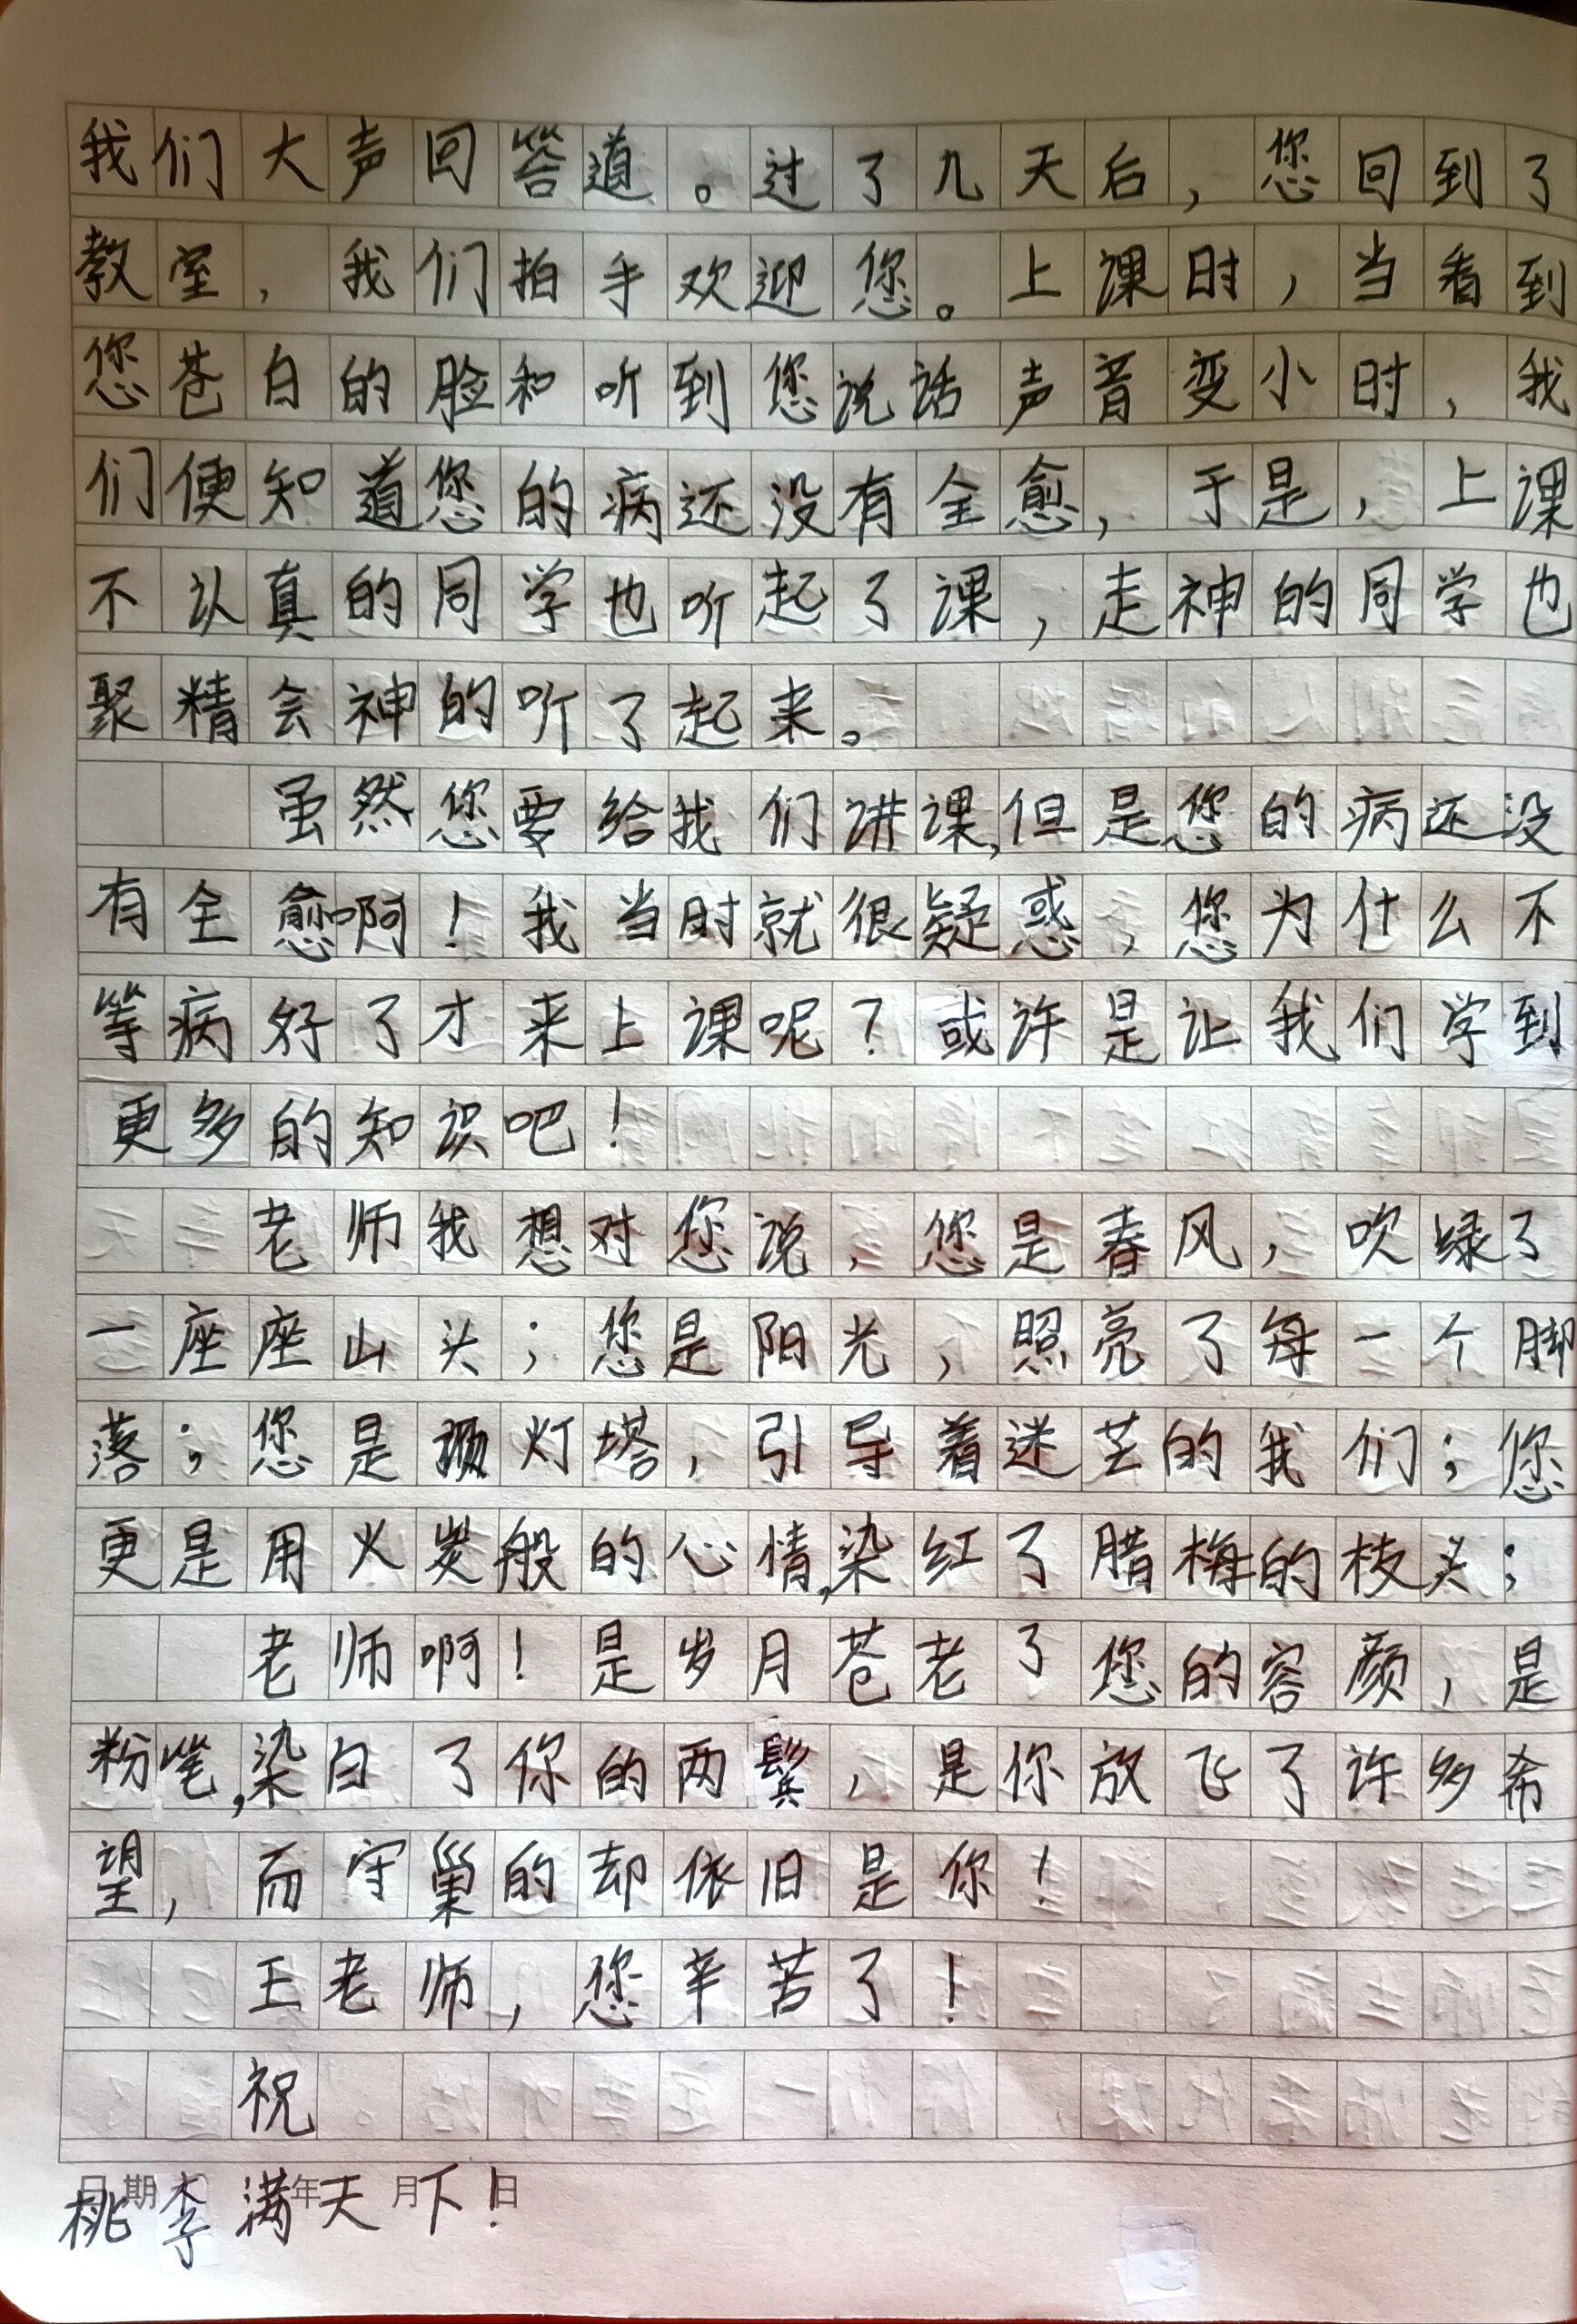 我们大声回答道。过了几天后，您回到了
教室，我们拍手欢迎您。上课时，当看到
您苍白的脸和听到您说话声音变小时，我
们便知道您的病还没有全愈，于是，上课
不认真的同学也听起了课，走神的同学也
聚精会神的听了起来。
虽然您要给我们讲课，但是您的病还没
有全愈啊！我当时就很疑惑，您为什么不
等病好了才来上课呢？或许是让我们学到
更多的知识吧！
老师我想对您说，您是春风，吹绿了
一座座山头；您是阳光，照亮了每一个脚
落；您是灯塔，引导着迷茫的我们；您
更是用火炭般的心情，染红了腊梅的枝头；
老师啊！是岁月苍老了您的容颜，是
粉笔，染白了你的两鬓，是你放飞了许多希
望，而守巢的却依旧是你！
王老师，您辛苦了！
祝
日期 年 月 日
桃李满天下！